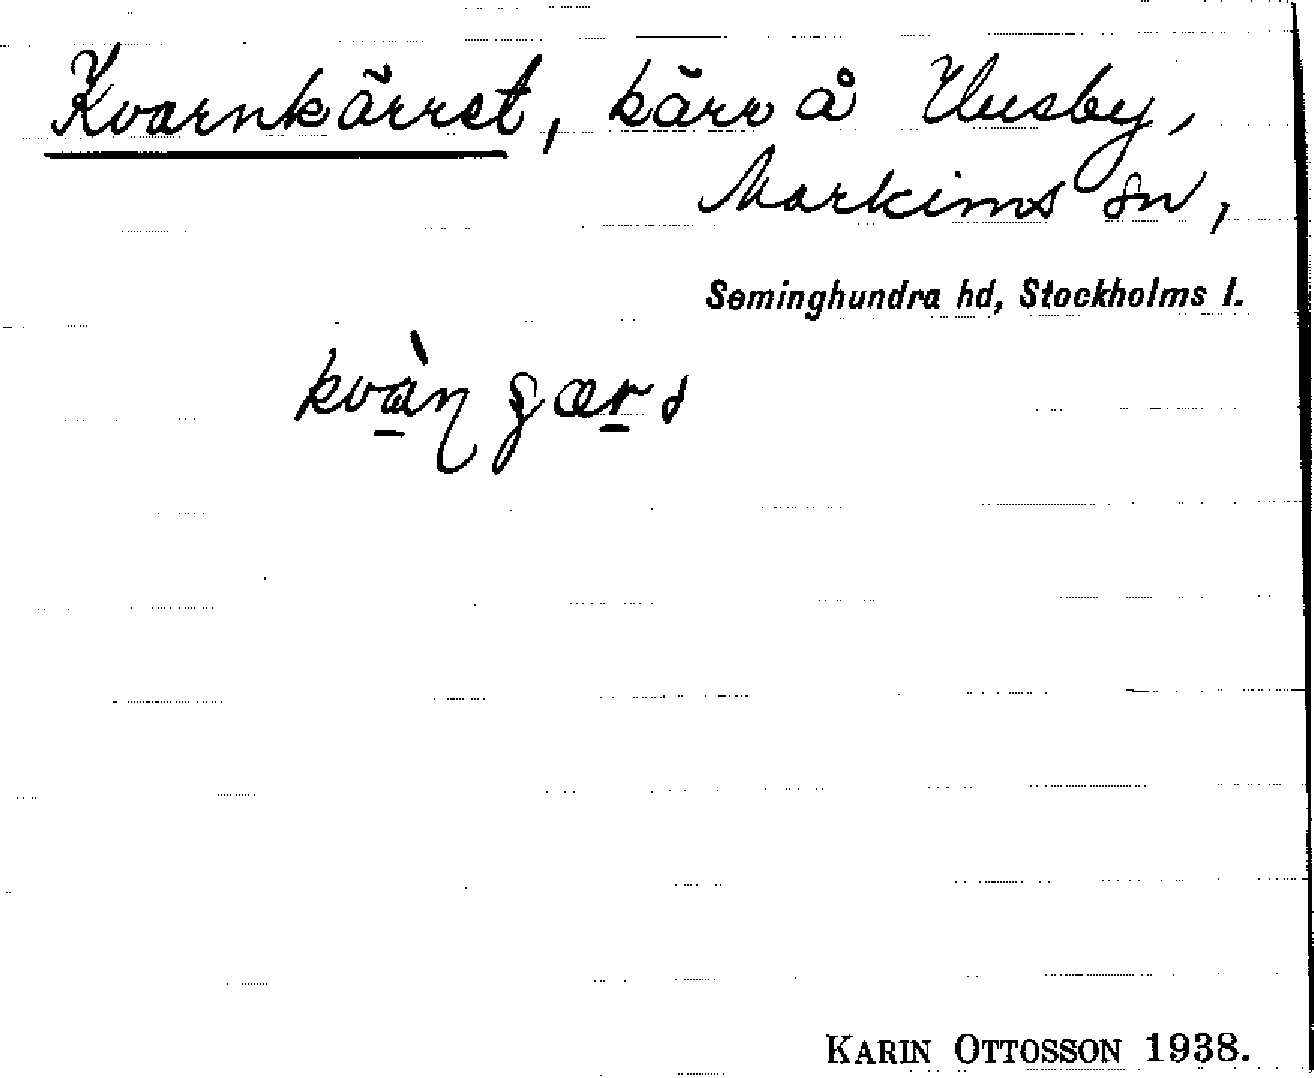 Kvarnkärret, kärr å Husby,
Markims sn,
Seminghundra hd, Stockholms l.
KARIN OTTOSSON 1938.